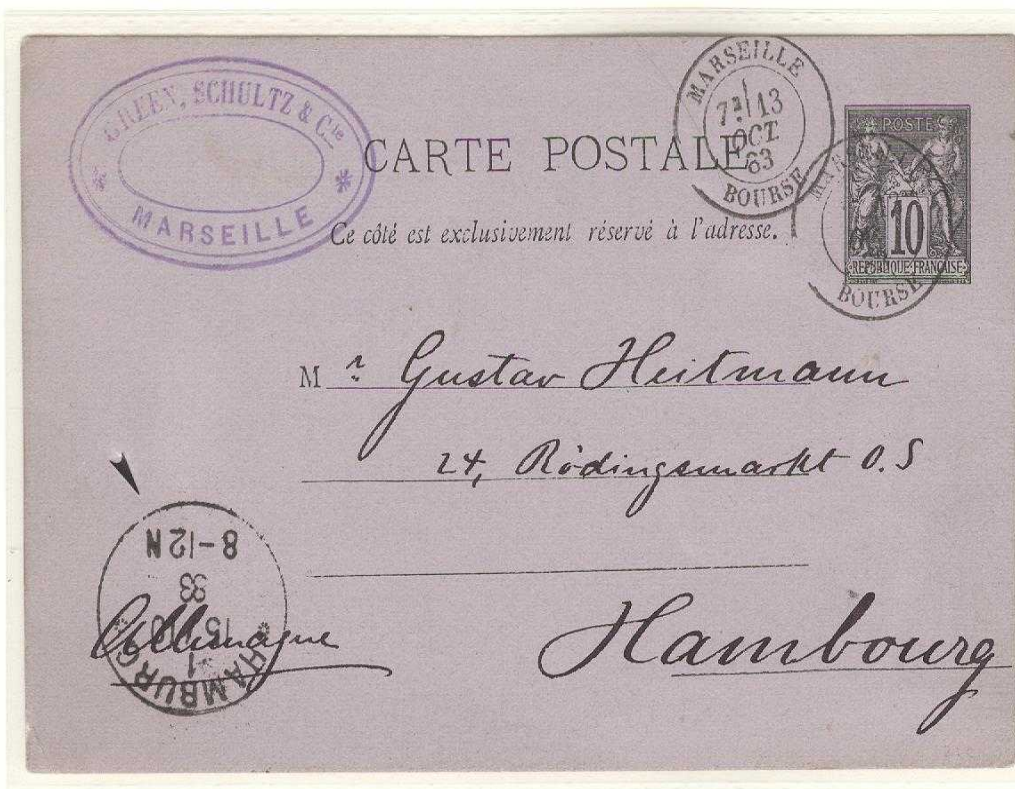 GREEN, SCHULTZ & Cie
MARSEILLE
CARTE POSTALE
Ce côté est exclusivement réservé à l'adresse.
MARSEILLE
7E 13
OCT.
83
BOURSE
POSTES
10
REPUBLIQUE FRANÇAISE
BOURSE
Mr Gustav Heitmann
24, Rödingsmarkt O.S
Hambourg
Allemagne
HAMBURG
1
15
83
8-12N